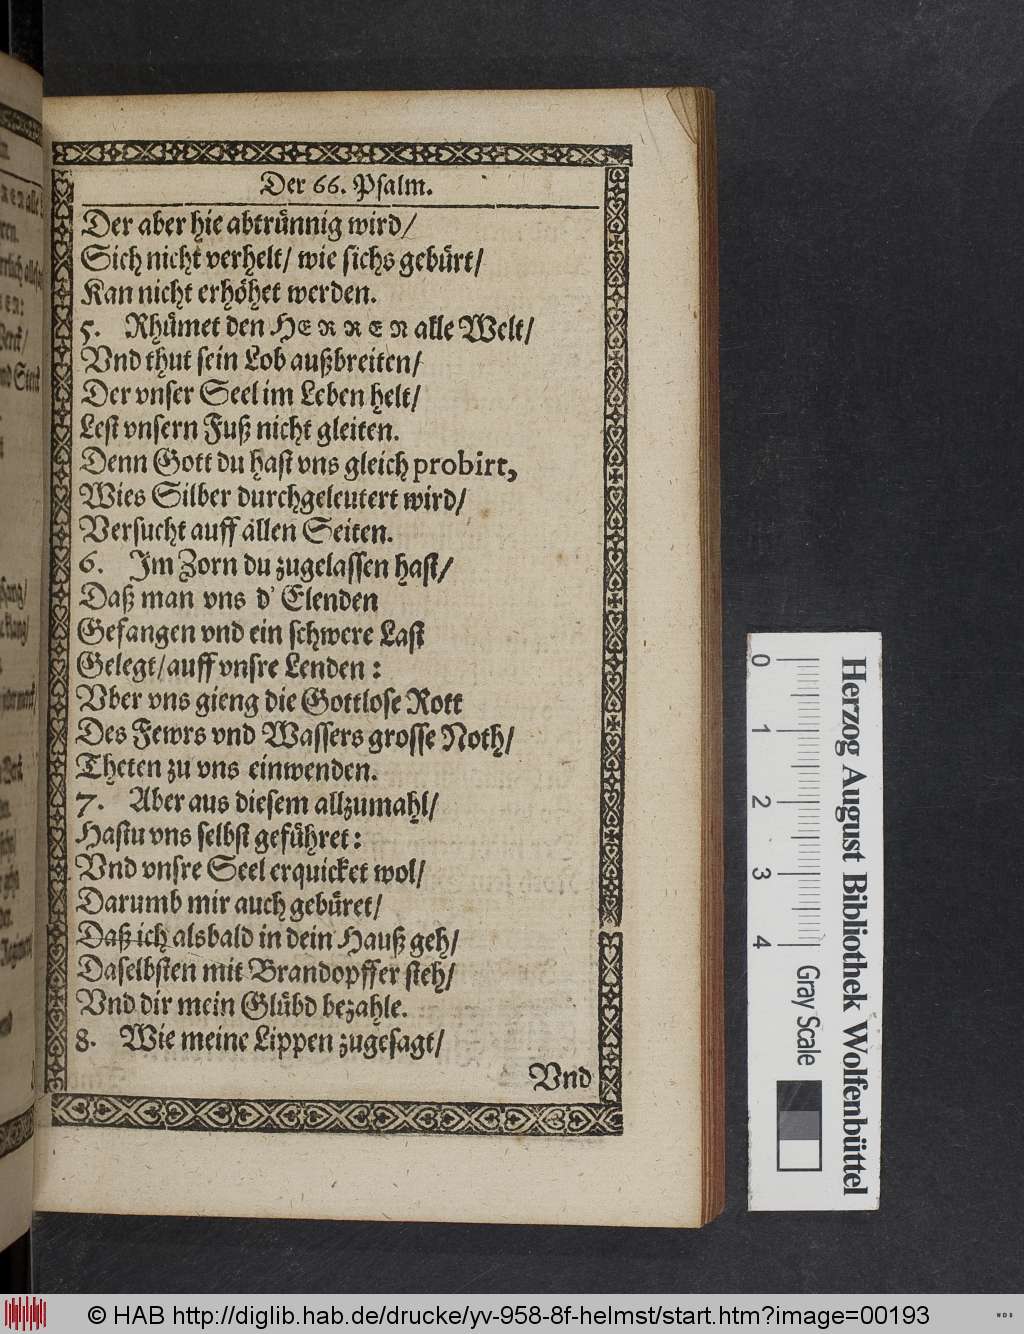 Der 66. Psalm.
Der aber hie abtrünnig wird/
Sich nicht verhelt/ wie sichs gebürt/
Kan nicht erhöhet werden.
5. Rhümet den HERREN alle Welt/
Vnd thut sein Lob außbreiten/
Der vnser Seel im Leben helt/
Lest vnsern Fuß nicht gleiten.
Denn Gott du hast vns gleich probirt,
Wies Silber durchgeleutert wird/
Versucht auff allen Seiten.
6. Im Zorn du zugelassen hast/
Daß man vns d' Elenden
Gefangen vnd ein schwere Last
Gelegt/ auff vnsre Lenden :
Vber vns gieng die Gottlose Rott
Des Fewrs vnd Wassers grosse Noth/
Theten zu vns einwenden.
7. Aber aus diesem allzumahl/
Hastu vns selbst geführet:
Vnd vnsre Seel erquicket wol/
Darumb mir auch gebüret/
Daß ich alsbald in dein Hauß geh/
Daselbsten mit Brandopffer steh/
Vnd dir mein Glübd bezahle.
8. Wie meine Lippen zugesagt/
Vnd
0 1 2 3 4
Gray Scale
Herzog August Bibliothek Wolfenbüttel
© HAB http://diglib.hab.de/drucke/yv-958-8f-helmst/start.htm?image=00193